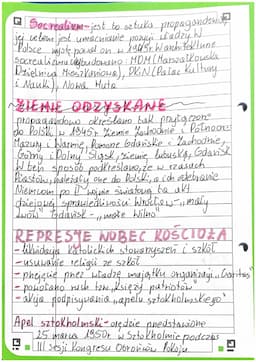 Socrealizm - jest to sztuka propagandowa,
jej celem jest umacnianie pozycji władzy. W
Polsce występował on w 1949r. W architekturze
socrealizmu wybudowano: MDM (Marszałkowska
Dzielnica Mieszkaniowa), PKiN (Pałac Kultury
i Nauki), Nowa Huta
ZIEMIE ODZYSKANE
propagandowo określano tak przyłączone
do Polski w 1945r. Ziemie Zachodnie i Północne:
Mazury i Warmię, Pomorze Gdańskie i Zachodnie,
Górny i Dolny Śląsk, Ziemię Lubuską, Gdańsk
W ten sposób podkreślano, że w czasach
Piastów należały one do Polski, a ich odebranie
Niemcom po II wojnie światowej to akt
dziejowej sprawiedliwości. Wrocław - "mały
Lwów" Gdańsk - "
REPRESJE WOBEC KOŚCIOŁA
- likwidacja katolickich stowarzyszeń i szkół
- usuwanie religii ze szkół
- przejęcie przez władzę majątku organizacji "Caritas"
- powołano ruch tzw. księży patriotów
- akcja podpisywania "apelu sztokholmskiego"
Apel sztokholmski - orędzie przedstawione
25 marca 1950r. w Sztokholmie podczas
III Sesji Kongresu Obrońców Pokoju